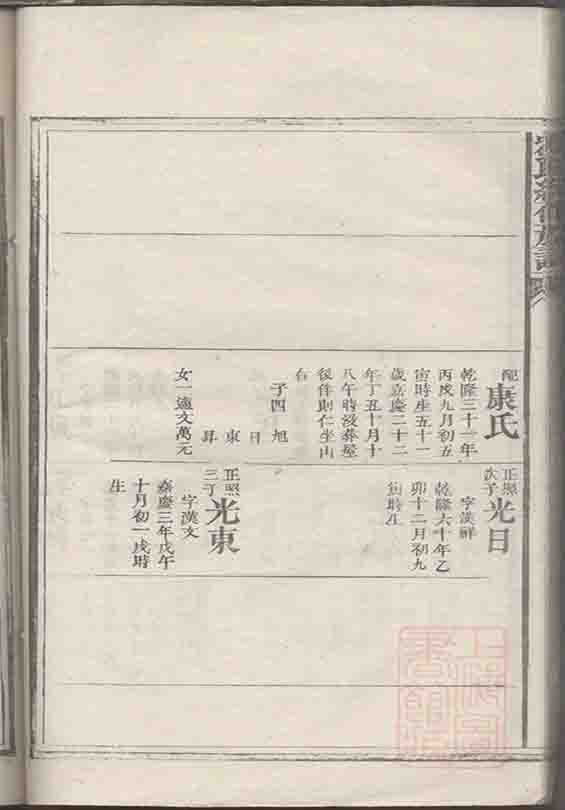 配
康氏
乾隆三十一年
丙戌九月初五
寅時生五十一
歲嘉慶二十二
年丁丑十月十
八午時没葬屋
後伴則仁坐山
右
子四旭
日
東
昇
女一適文萬元
正照
次子
光日
字漢祥
乾隆六十年乙
卯十二月初九
時生
正照
三子
光東
字漢文
嘉慶三年戊午
十月初一戌時
生